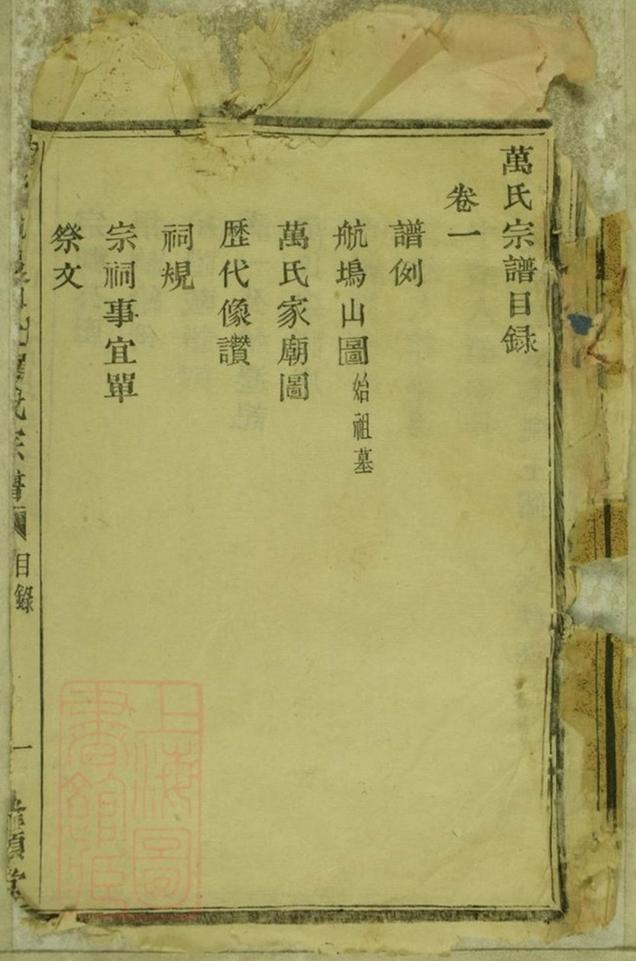 萬氏宗譜目録
卷一
譜例
航塢山圖始祖墓
萬氏家廟圖
歴代像讚
祠規
宗祠事宜單
祭文
氏宗譜
目錄
一
上海圖
書館藏